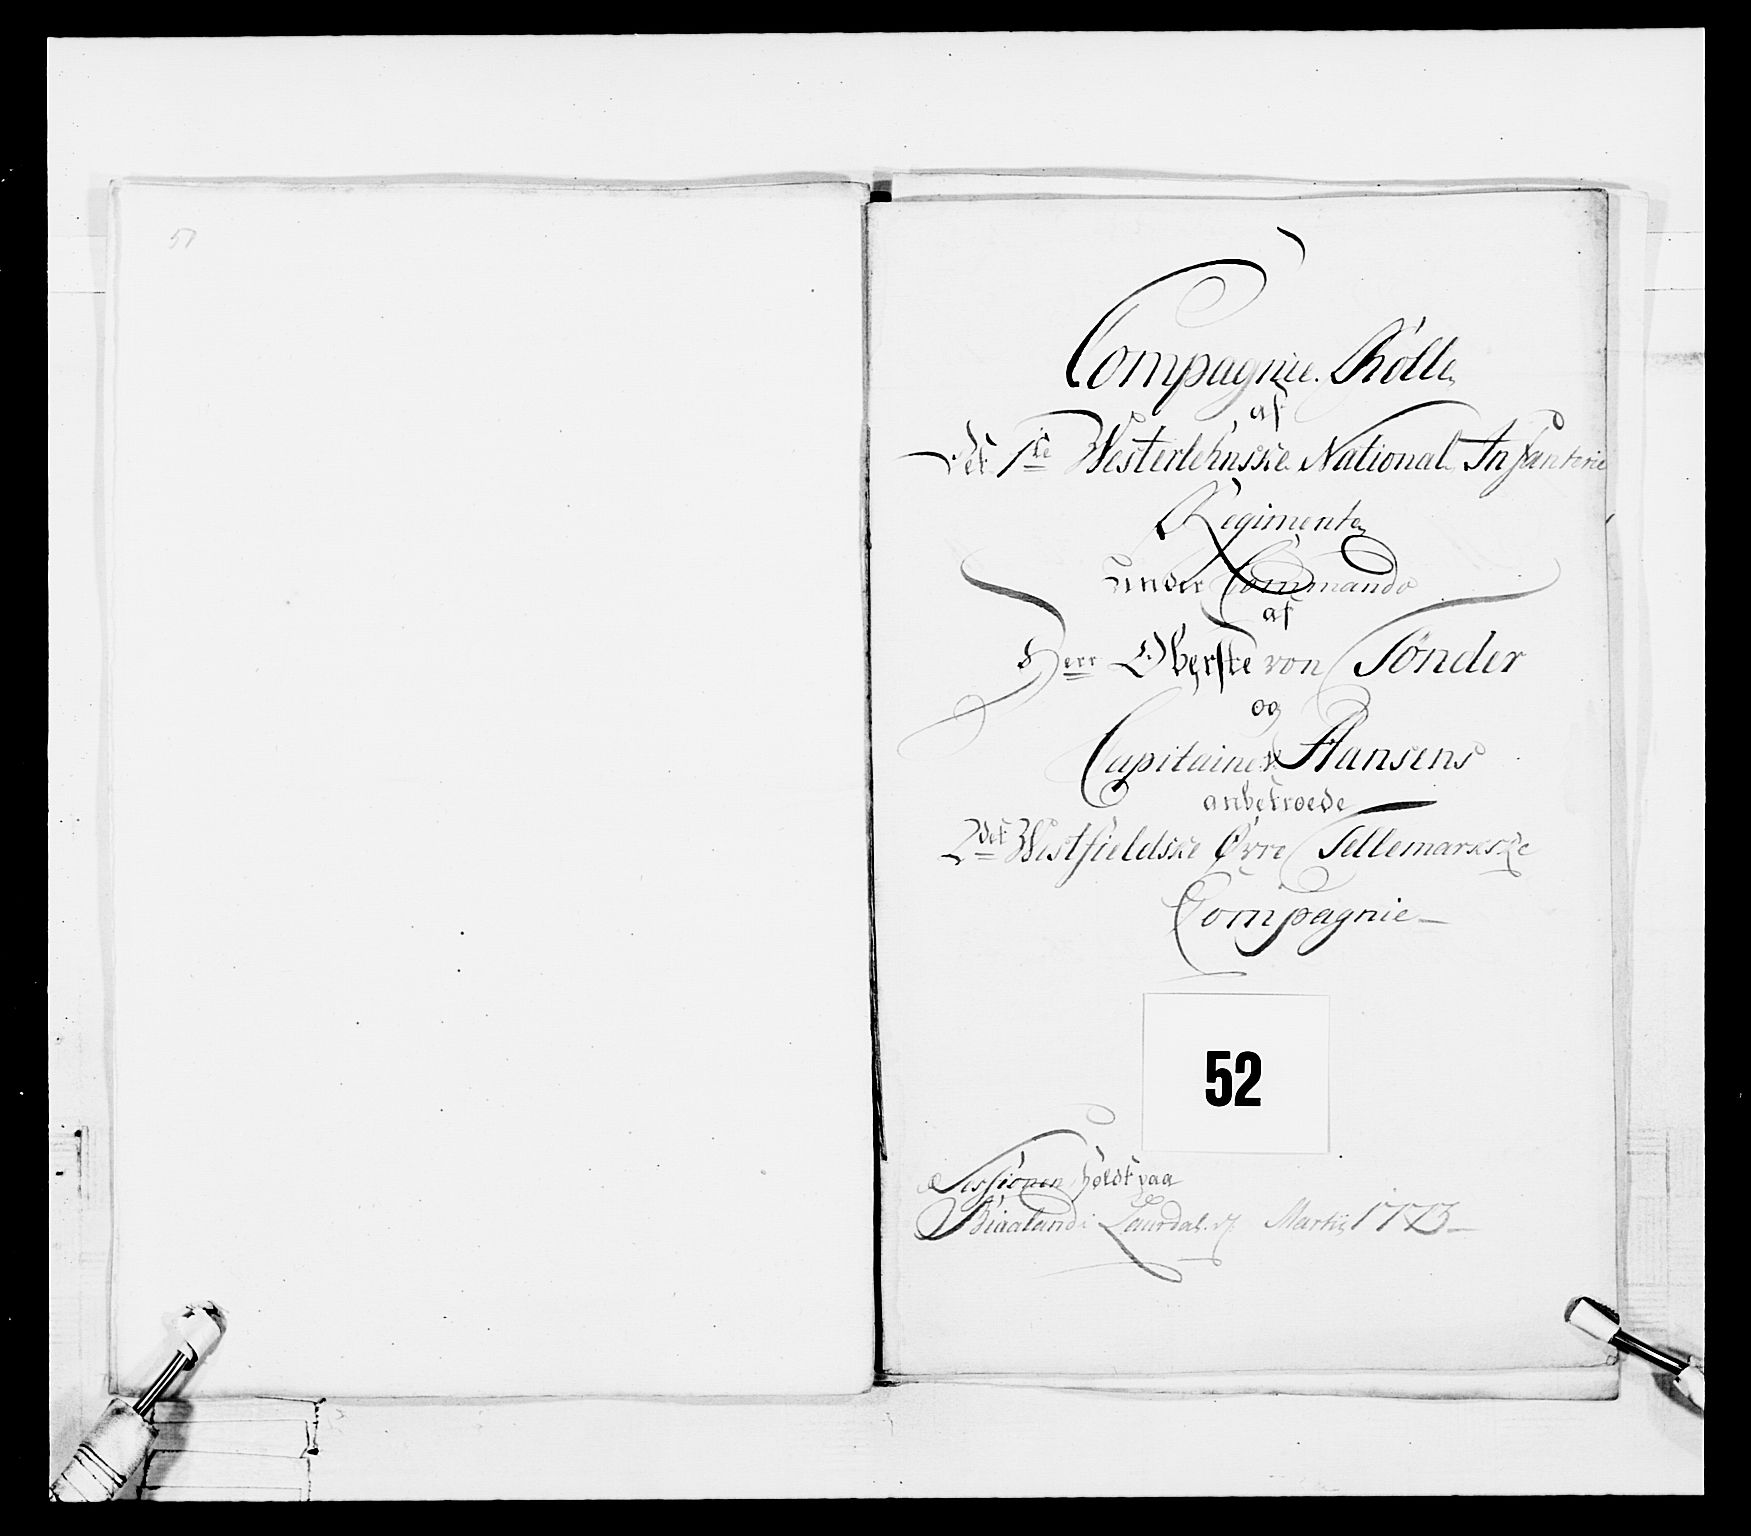 51
Compagnie Rolle
af
Det 1ste Westerlehnske National Infanterie
Regimente
under Commando
af
Herr Oberste von Tønder
og
Capitaine Hansens
anbetroede
2det Westfieldske Øvre Tellemarkske
Compagnie
52
Sessionen holdt paa
Biaaland i Laurdal d Martii 1773